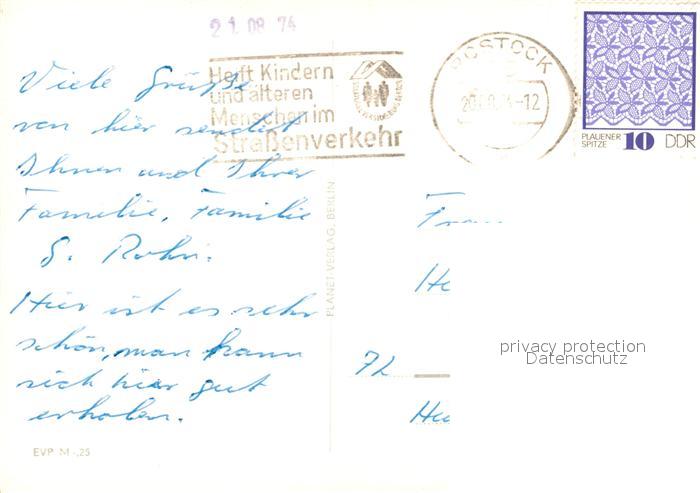 21 08 74
Helft Kindern
und älteren
Menschen im
Straßenverkehr
ROSTOCK
-12
PLAUENER
SPITZE
10 DDR
Viele Grüße
von hier sendet
Ihnen und Ihrer
Familie, Familie
G.
Hier ist es sehr
schön, man kann
sich hier gut
erholen.
EVP M -,25
PLANET-VERLAG, BERLIN
Frau
He
72
privacy protection
Datenschutz